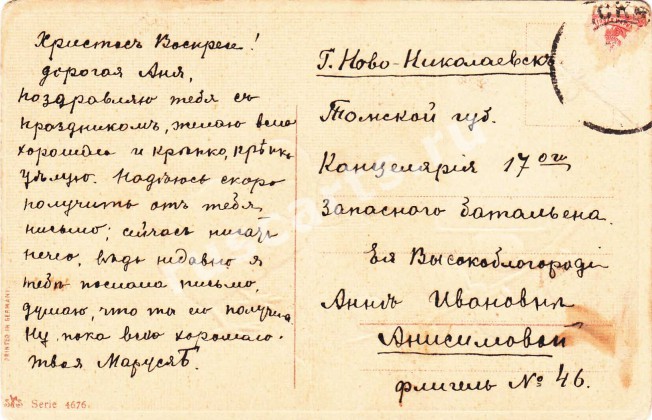 Христосъ Воскресе!
дорогая Аня,
поздравляю тебя съ
праздникомъ, желаю всего
хорошаго и крѣпко, крѣпко
цѣлую. Надѣюсь скоро
получить отъ тебя
письмо; сейчасъ писать
нечего, вѣдь недавно я
тебѣ послала письмо,
думаю, что ты его получила
Ну, пока всего хорошаго.
твоя Маруся Б.
PRINTED IN GERMANY
Serie 4676.
Г. Ново-Николаевскъ
Томской губ.
Канцелярія 17ого
Запасного батальена
Ея Высокоблагородi
Аннѣ Ивановнѣ
Анисимовой
флигель № 46.
СКЪ